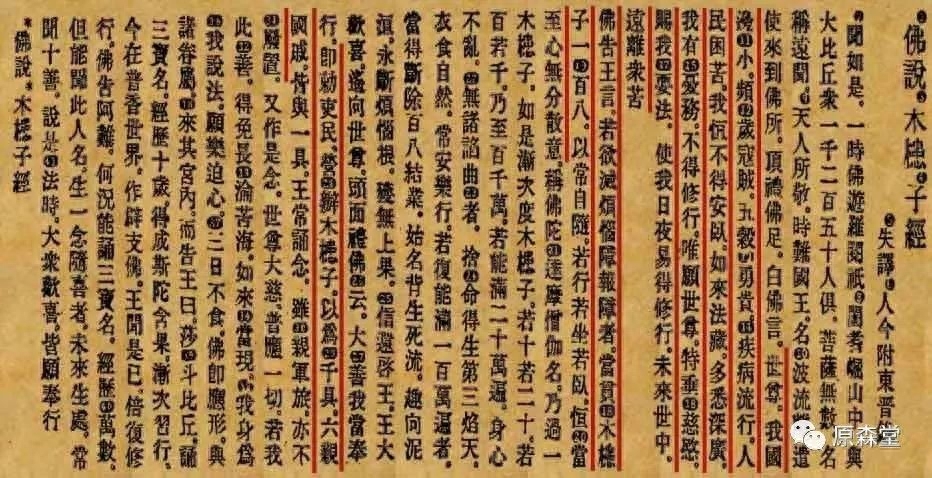 佛說木槵子經
失譯人今附東晉
聞如是。一時佛遊羅閱祇闍耆崛山中。與
大比丘衆一千二百五十人俱。菩薩無數。名
稱遠聞。天人所敬。時難國王名波流離。遣
使來到佛所。頂禮佛足。白佛言。世尊。我國
邊小。頻歲寇賊。五穀勇貴。疾病流行。人
民困苦。我恒不得安臥。如來法藏。多悉深廣。
我有憂務。不得修行。唯願世尊。特垂慈愍。
賜我要法。使我日夜易得修行。未來世中。
遠離衆苦
佛告王言。若欲滅煩惱障報障者。當貫木槵
子一百八。以常自隨。若行若坐若臥。恒當
至心無分散意。稱佛陀達摩僧伽名。乃過一
木槵子。如是漸次度木槵子。若十若二十。若
百若千。乃至百千萬。若能滿二十萬遍。身心
不亂。無諸諂曲者。捨命得生第三焰天。
衣食自然。常安樂行。若復能滿一百萬遍者。
當得斷除百八結業。始名背生死流。趣向泥
洹。永斷煩惱根。獲無上果。信還啓王。王大
歡喜。遙向世尊。頭面禮佛云。大善我當奉
行。即勅吏民。營辦木槵子。以爲千具。六親
國戚。皆與一具。王常誦念。雖親軍旅。亦不
廢置。又作是念。世尊大慈。普應一切。若我
此善。得免長淪苦海。如來當現。我身爲
我說法。願樂迫心。三日不食。佛即應形。與
諸眷屬。來其宮內。而告王曰。莎斗比丘。誦
三寶名。經歷十歲。得成斯陀含果。漸次習行。
今在普香世界。作辟支佛。王聞是已。倍復修
行。佛告阿難。何況能誦三寶名。經歷萬數。
但能聞此人名。生一念隨喜者。未來生處。常
聞十善。說是法時。大衆歡喜。皆願奉行
佛說木槵子經
原森堂